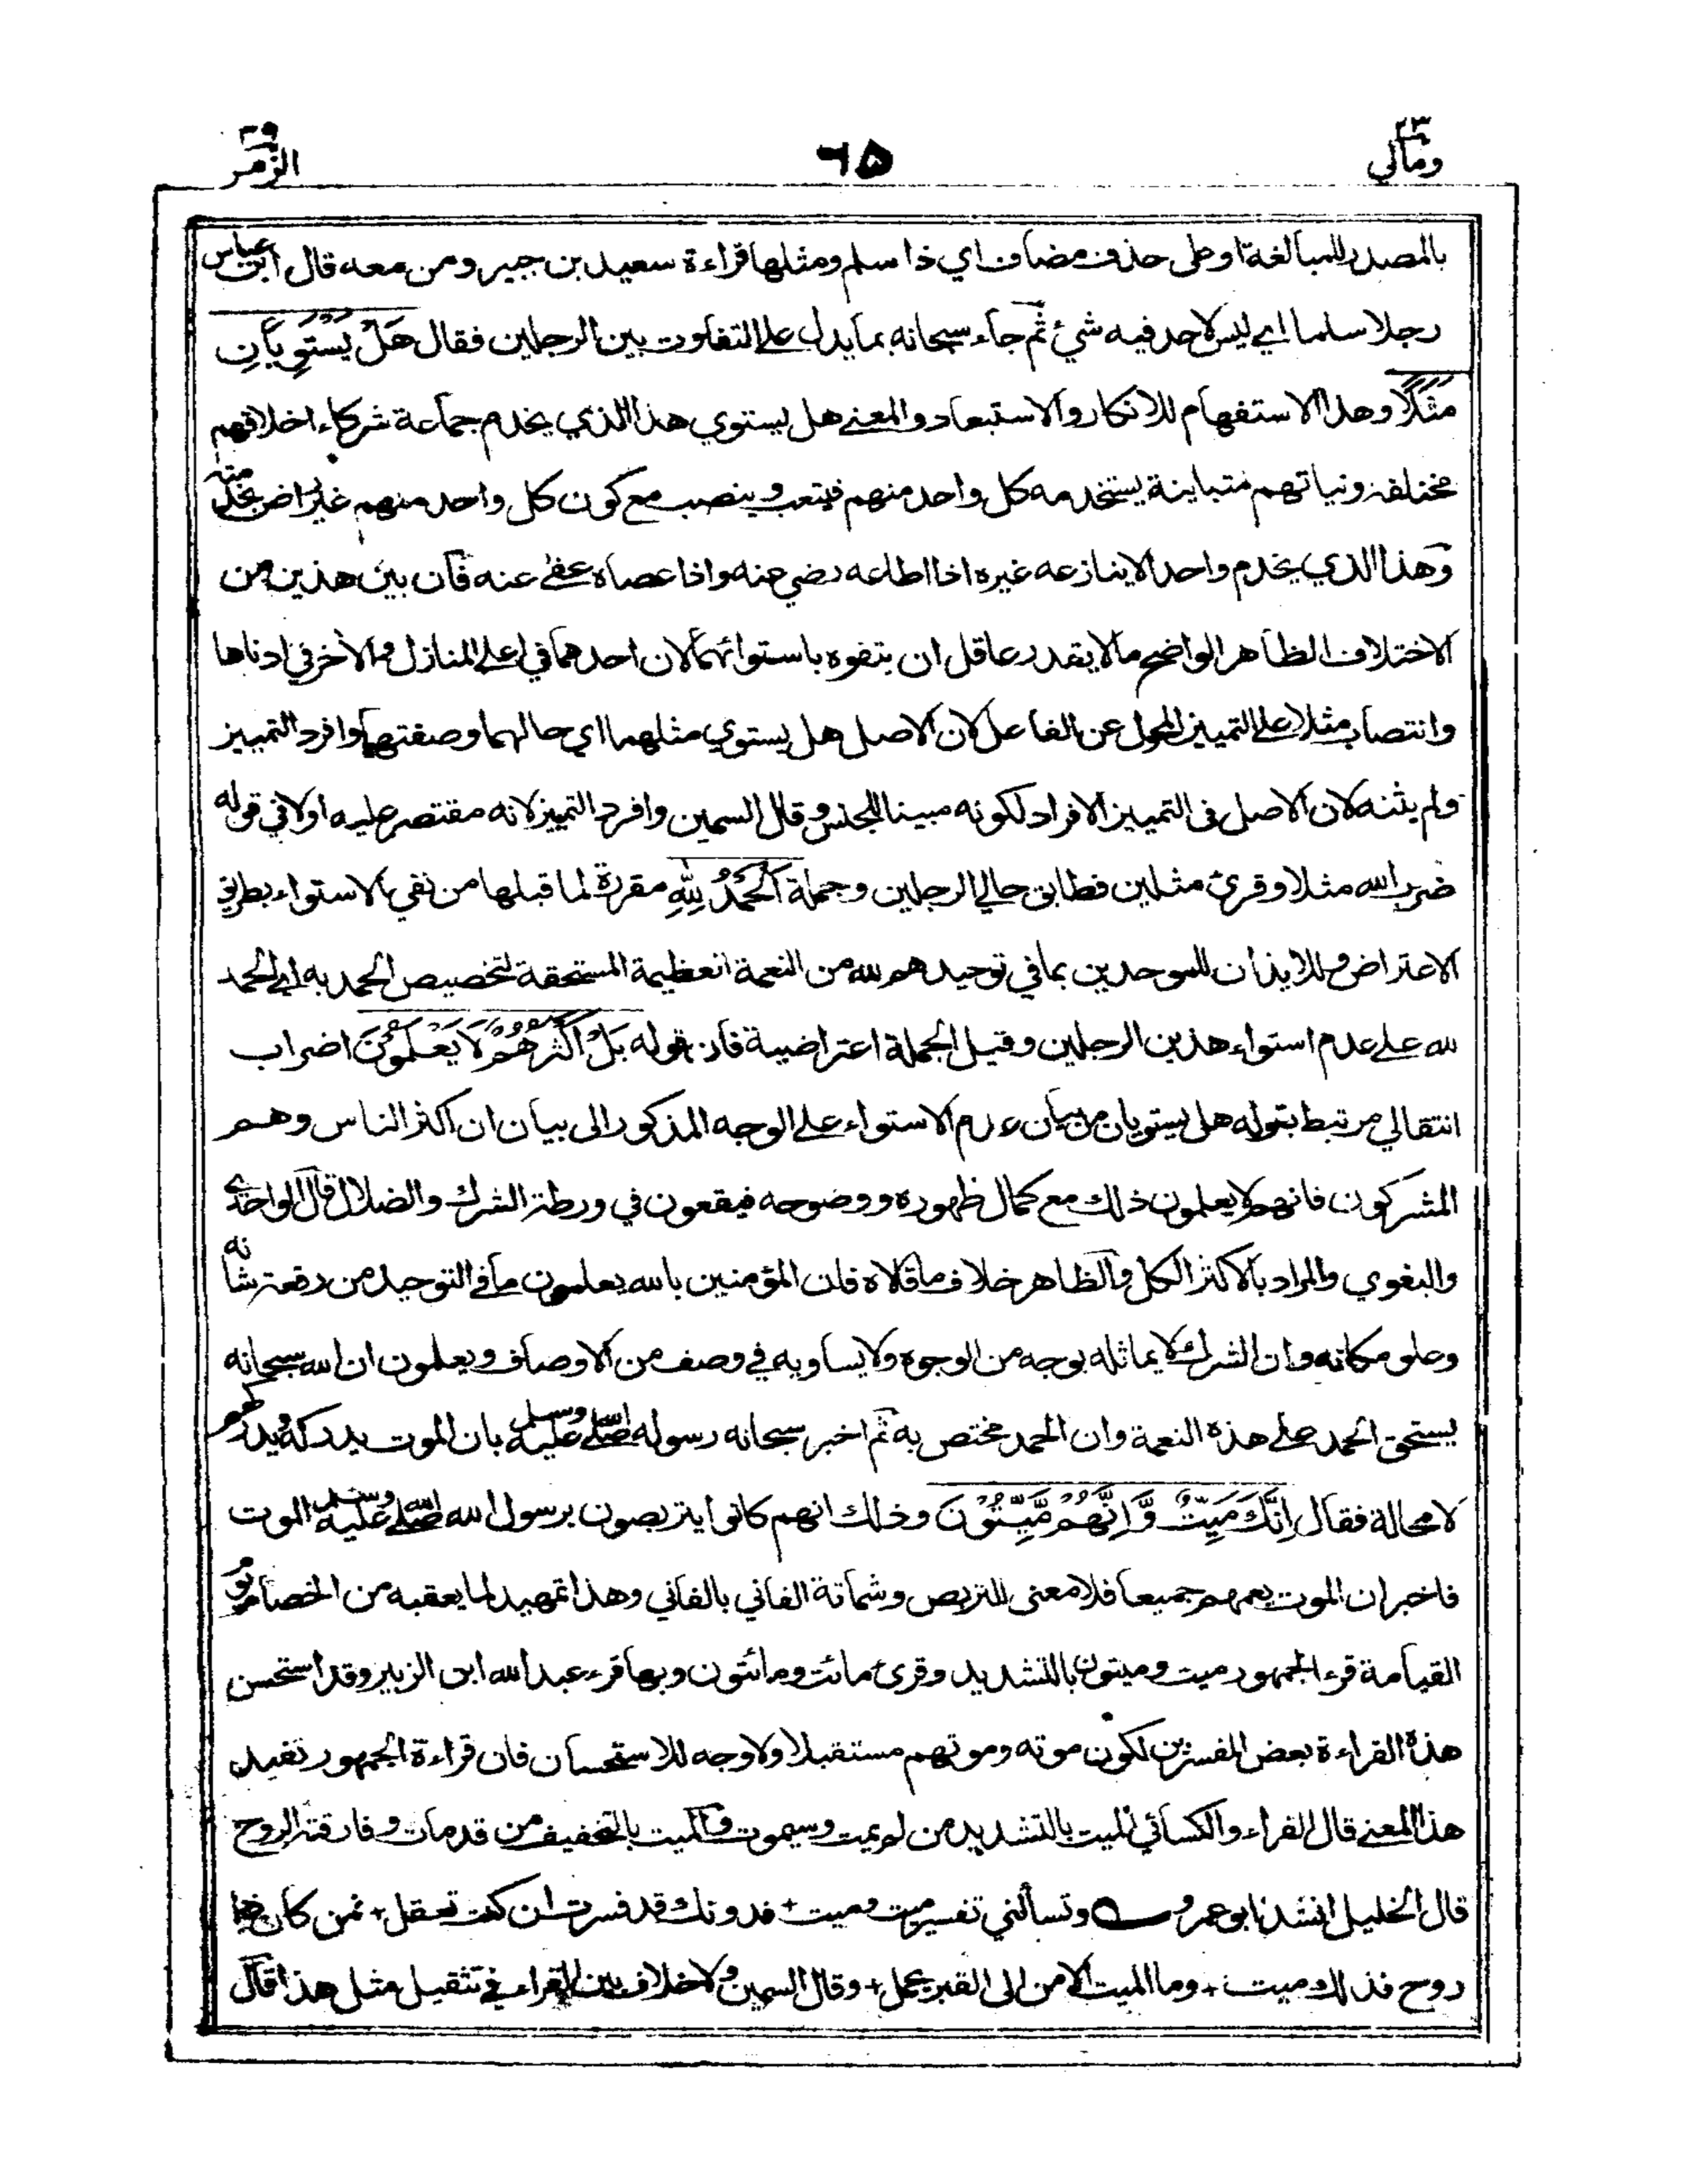 ٢٣
ومالي
٦٥
٣٩
الزمر
بالمصدر للمبالغة او على حذف مضاف اي ذا سلم ومثلها قراءة سعيد بن جبير ومن معه قال ابن عباس
رجلا سلما اي ليس لاحد فيه شئ ثم جاء سبحانه بما يدل على التفاوت بين الرجلين فقال هَلْ يَسْتَوِيَانِ
مَثَلًا وهذا الاستفهام للانكار والاستبعاد والمعنى هل يستوي هذا الذي يخدم جماعة شركاء اخلاقهم
مختلفة ونياتهم متباينة يستخدمه كل واحد منهم فيتعب وينصب مع كون كل واحد منهم غير راض بخدمته
وهذا الذي يخدم واحدا لا ينازعه غيره اذا اطاعه رضي عنه واذا عصاه عفى عنه فان بين هذين من
الاختلاف الظاهر الواضح ما لا يقدر عاقل ان يتفوه باستوائهما لان احدهما في اعلى المنازل والآخر في ادناها
وانتصاب مثلا على التمييز المحول عن الفاعل لان الاصل هل يستوي مثلهما اي حالهما وصفتهما وافرد التمييز
ولم يثنه لان الاصل في التمييز الافراد لكونه مبينا للجنس وقال السمين وافرد التمييز لانه مقتصر عليه اولا في قوله
ضرب الله مثلا وقرئ مثلين فطابق حالي الرجلين وجملة اَلْحَمْدُ لِلّٰهِ مقررة لما قبلها من نفي الاستواء بطريق
الاعتراض وللايذان للموحدين بما في توحيدهم لله من النعمة العظيمة المستحقة لتخصيص الحمد به اي الحمد
لله على عدم استواء هذين الرجلين وقيل الجملة اعتراضية فان قوله بَلْ اَكْثَرُهُمْ لَا يَعْلَمُوْنَ اضراب
انتقالي مرتبط بقوله هل يستويان من بيان عدم الاستواء على الوجه المذكور الى بيان ان اكثر الناس وهم
المشركون فانهم لا يعلمون ذلك مع كمال ظهوره ووضوحه فيقعون في ورطة الشرك والضلال قال الواحدي
والبغوي والمراد بالاكثر الكل والظاهر خلاف ما قالاه فان المؤمنين بالله يعلمون ما في التوحيد من رفعة شانه
وعلو مكانه وان الشرك لا يماثله بوجه من الوجوه ولا يساويه في وصف من الاوصاف ويعلمون ان الله سبحانه
يستحق الحمد على هذه النعمة وان الحمد مختص به ثم اخبر سبحانه رسوله صلى الله عليه وسلم بان الموت يدركه ويدركهم
لا محالة فقال اِنَّكَ مَيِّتٌ وَّاِنَّهُمْ مَّيِّتُوْنَ وذلك انهم كانوا يتربصون برسول الله صلى الله عليه وسلم الموت
فاخبر ان الموت يعمهم جميعا فلا معنى للتربص وشماتة الفاني بالفاني وهذا تمهيد لما يعقبه من الخصام يوم
القيامة قرء الجمهور ميت وميتون بالتشديد وقرئ مائت ومائتون وبها قرء عبد الله ابن الزبير وقد استحسن
هذه القراءة بعض المفسرين لكون موته وموتهم مستقبلا ولا وجه للاستحسان فان قراءة الجمهور تفيد
هذا المعنى قال الفراء والكسائي الميت بالتشديد من لم يمت وسيموت والميت بالتخفيف من قد مات وفارقته الروح
قال الخليل انشدنا ابو عمرو وتسألني تفسير ميت وميت + فدونك قد فسرت ان كنت تعقل + فمن كان ذا
روح فذلك ميت + وما الميت الا من الى القبر يحمل + وقال السمين ولا خلاف بين القراء في تثقيل مثل هذا قال